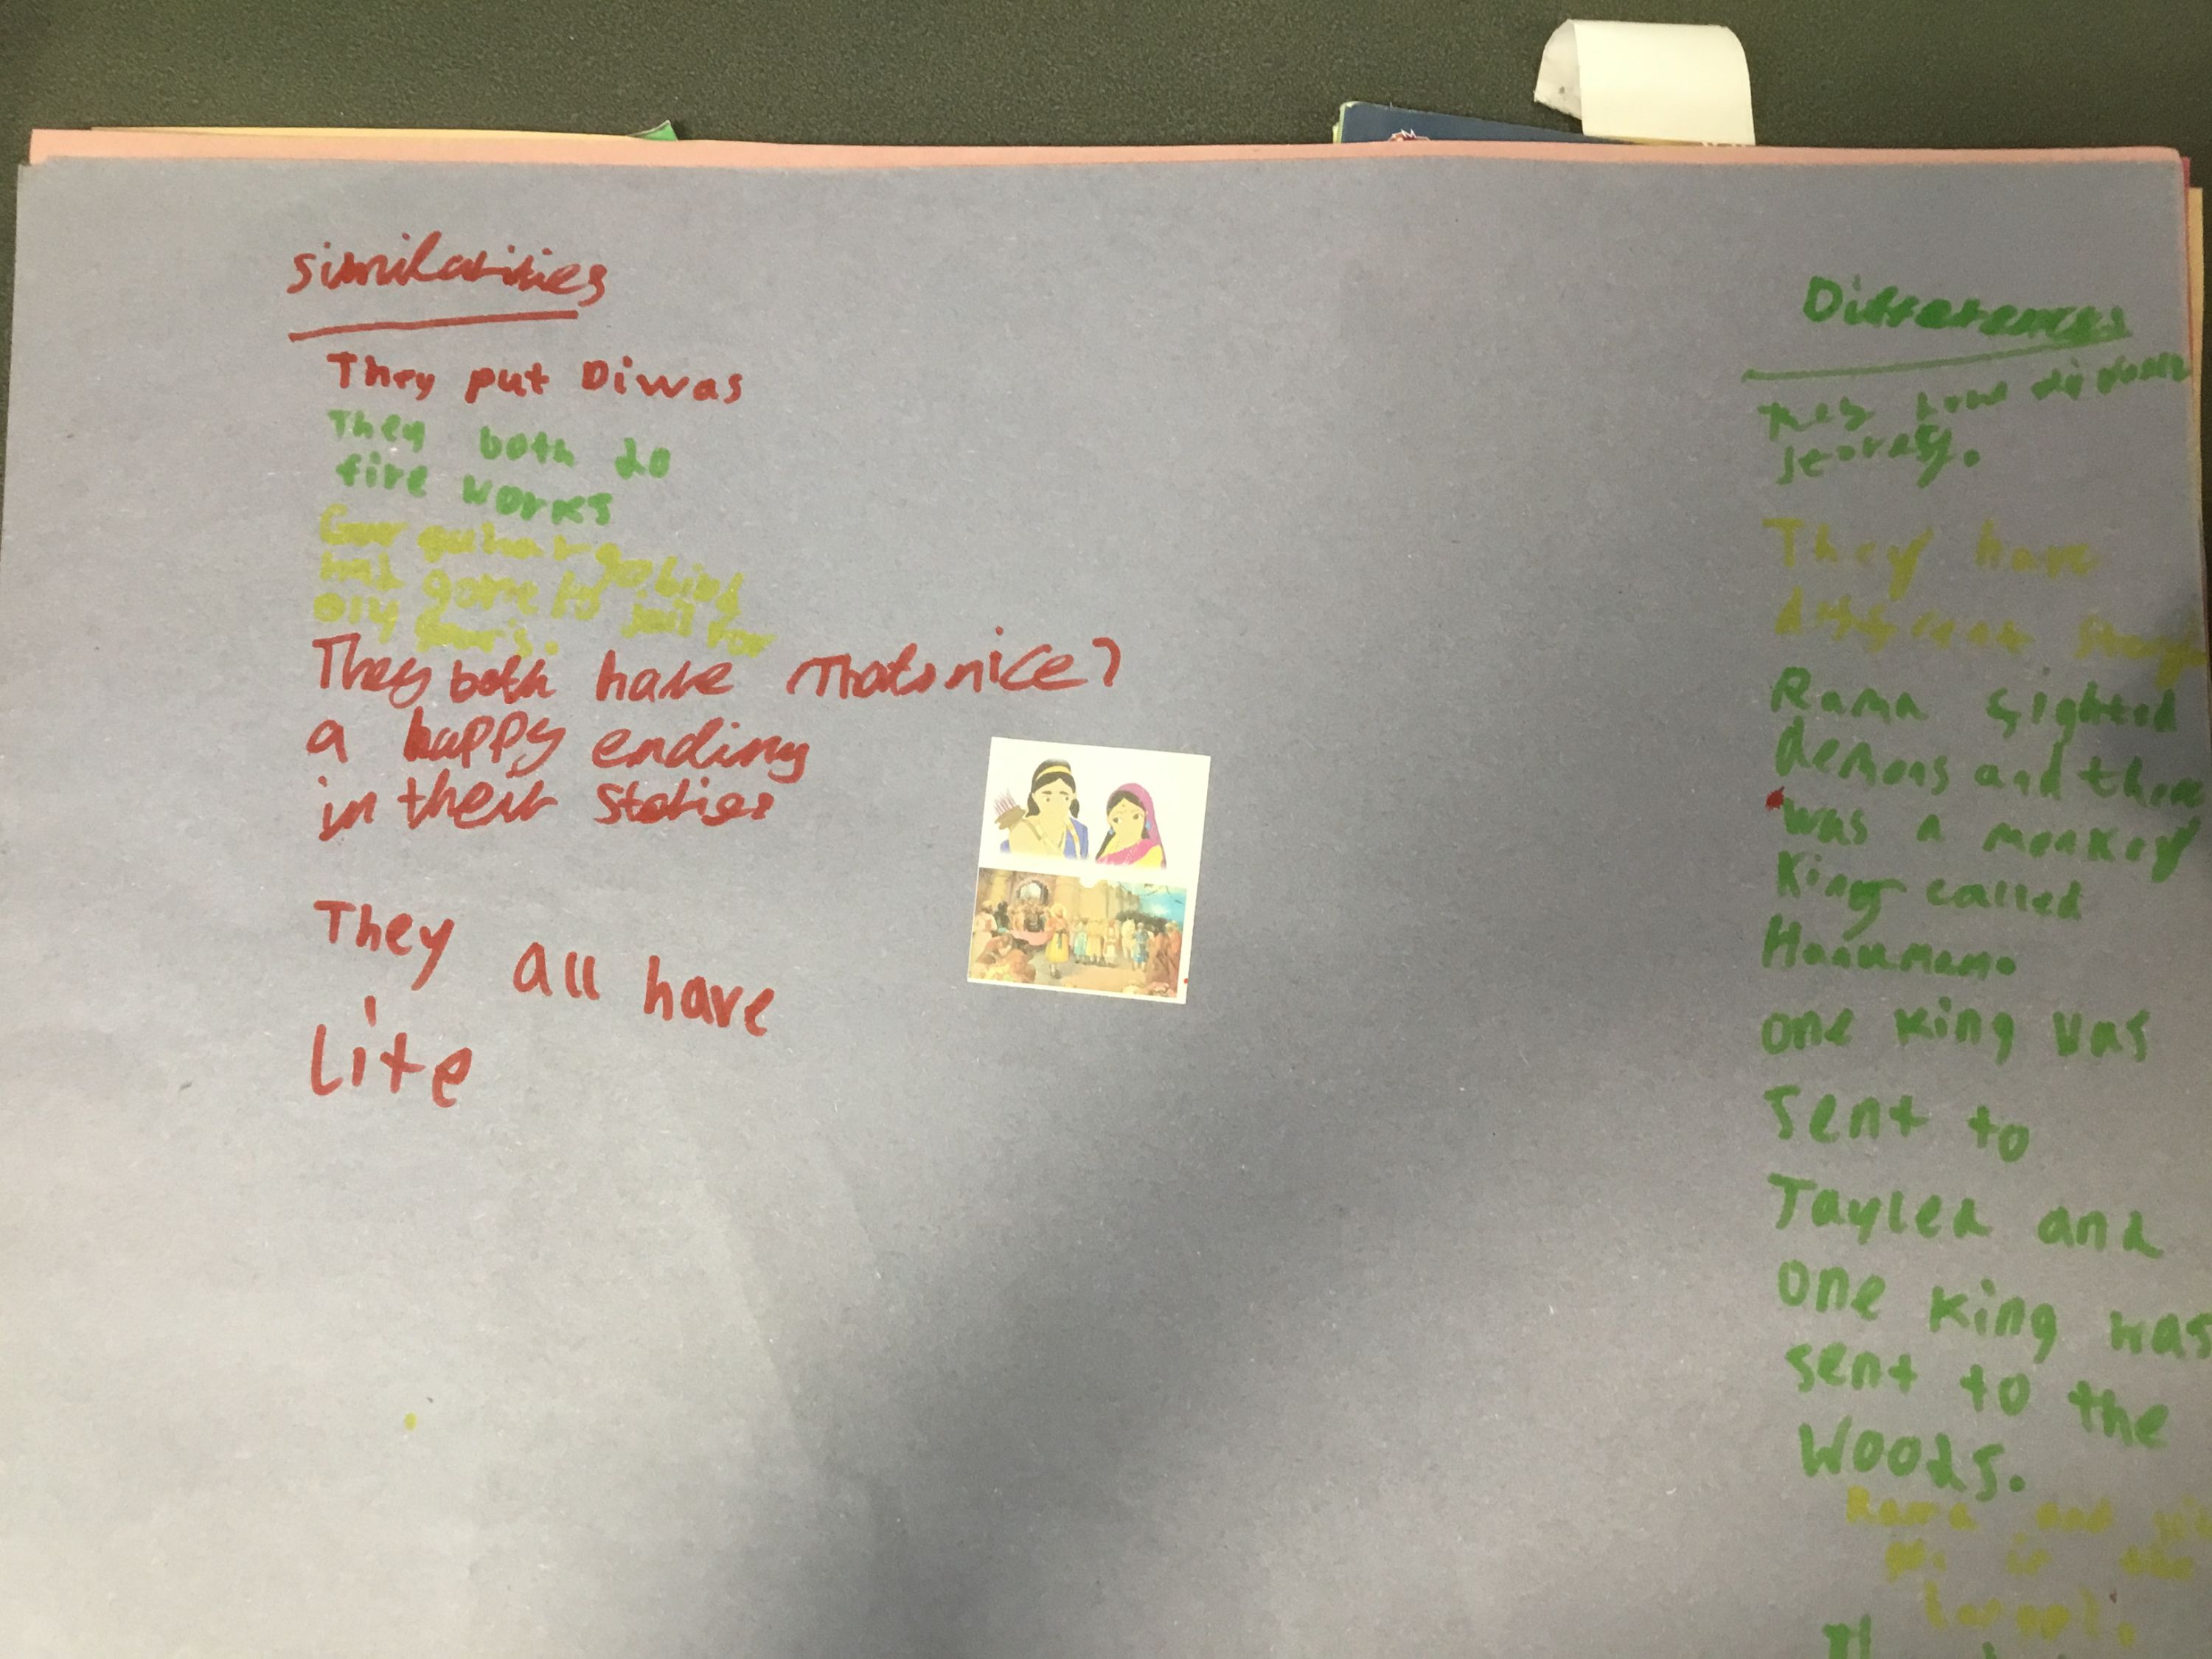 similarities
They put Diwas
They both do
fire works
gobind
had gone to jail for
They both have Thats nice?
a happy ending
in their stories
They all have
lite
Differences
They have
storey.
They have
Rama fighted
demons and there
was a monkey
King called
one king was
sent to
Tayled and
one king was
sent to the
woods.
Rama and
in the